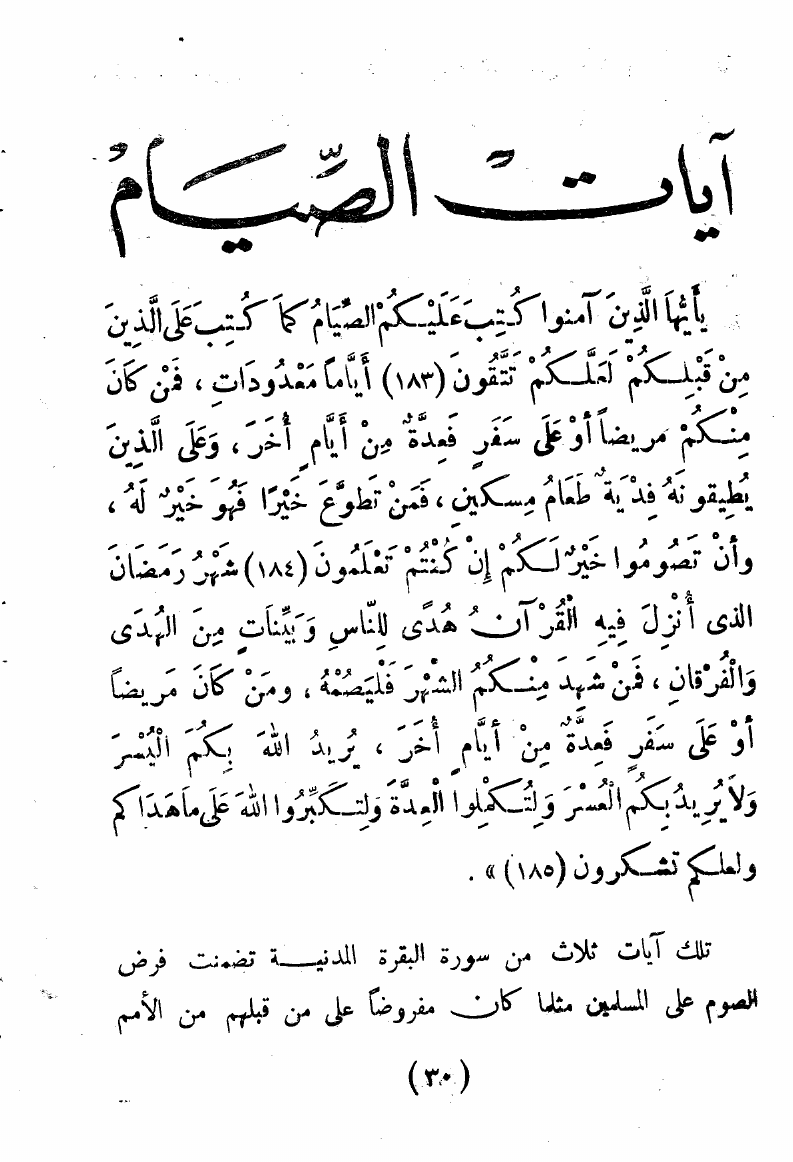 آيات الصِّيَام
يأَيُّهَا الَّذِينَ آمنوا كُتِبَ عَلَيْكُمُ الصِّيَامُ كَمَا كُتِبَ عَلَى الَّذِينَ
مِنْ قَبْلِكُمْ لَعَلَّكُمْ تَتَّقُونَ (١٨٣) أَيَّاماً مَعْدُودَاتٍ ، فَمَنْ كَانَ
مِنْكُمْ مَريضاً أوْ عَلَى سَفَرٍ فَعِدَّةٌ مِنْ أَيَّامٍ أُخَرَ ، وَعَلَى الَّذِينَ
يُطِيقونَهُ فِدْيَةٌ طَعَامُ مِسكينٍ ، فَمَنْ تَطوَّعَ خَيْرًا فَهُوَ خَيْرٌ لَهُ ،
وأنْ تَصُومُوا خَيْرٌ لَكُمْ إِنْ كُنْتُمْ تَعْلَمُونَ (١٨٤) شَهْرُ رَمَضَانَ
الذى أُنْزِلَ فِيهِ الْقُرْآنُ هُدًى لِلنَّاسِ وَبَيِّنَاتٍ مِنَ الهُدَى
وَالْفُرْقانِ ، فَمَنْ شَهِدَ مِنْكُمُ الشهْرَ فَلْيَصُمْهُ ، ومَنْ كَانَ مَريضاً
أوْ عَلَى سَفَرٍ فَعِدَّةٌ مِنْ أيَّامٍ أُخَرَ ، يُريدُ اللهُ بِكُمَ الْيُسْرَ
وَلاَ يُرِيدُ بِكُمُ العُسْرَ وَلِتُكْمِلُوا الْعِدَّةَ وَلِتكَبِّرُوا اللهَ عَلَى ماَهَدَاكم
ولعلكم تشكرون (١٨٥) » .
تلك آيات ثلاث من سورة البقرة المدنيـة تضمنت فرض
الصوم على المسلمين مثلما كان مفروضاً على من قبلهم من الأمم
(٣٠)